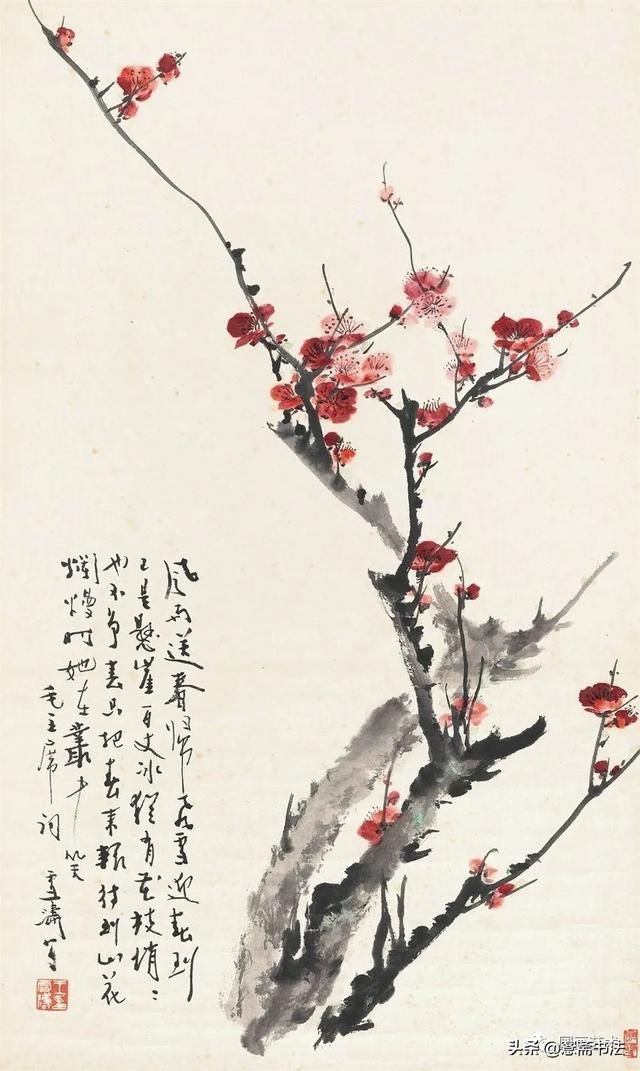 風雨送春归飛雪迎春到
已是懸崖百丈冰猶有花枝俏〻
也不争春只把春来報待到山花
爛熳时她在叢中笑
毛主席词 雪濤寫
头条 @斋书法